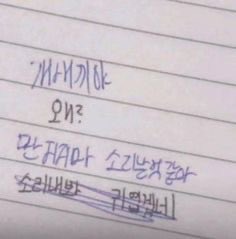 개새끼야
왜?
만지지마 소리날것같아
소리내봐 귀엽겠네